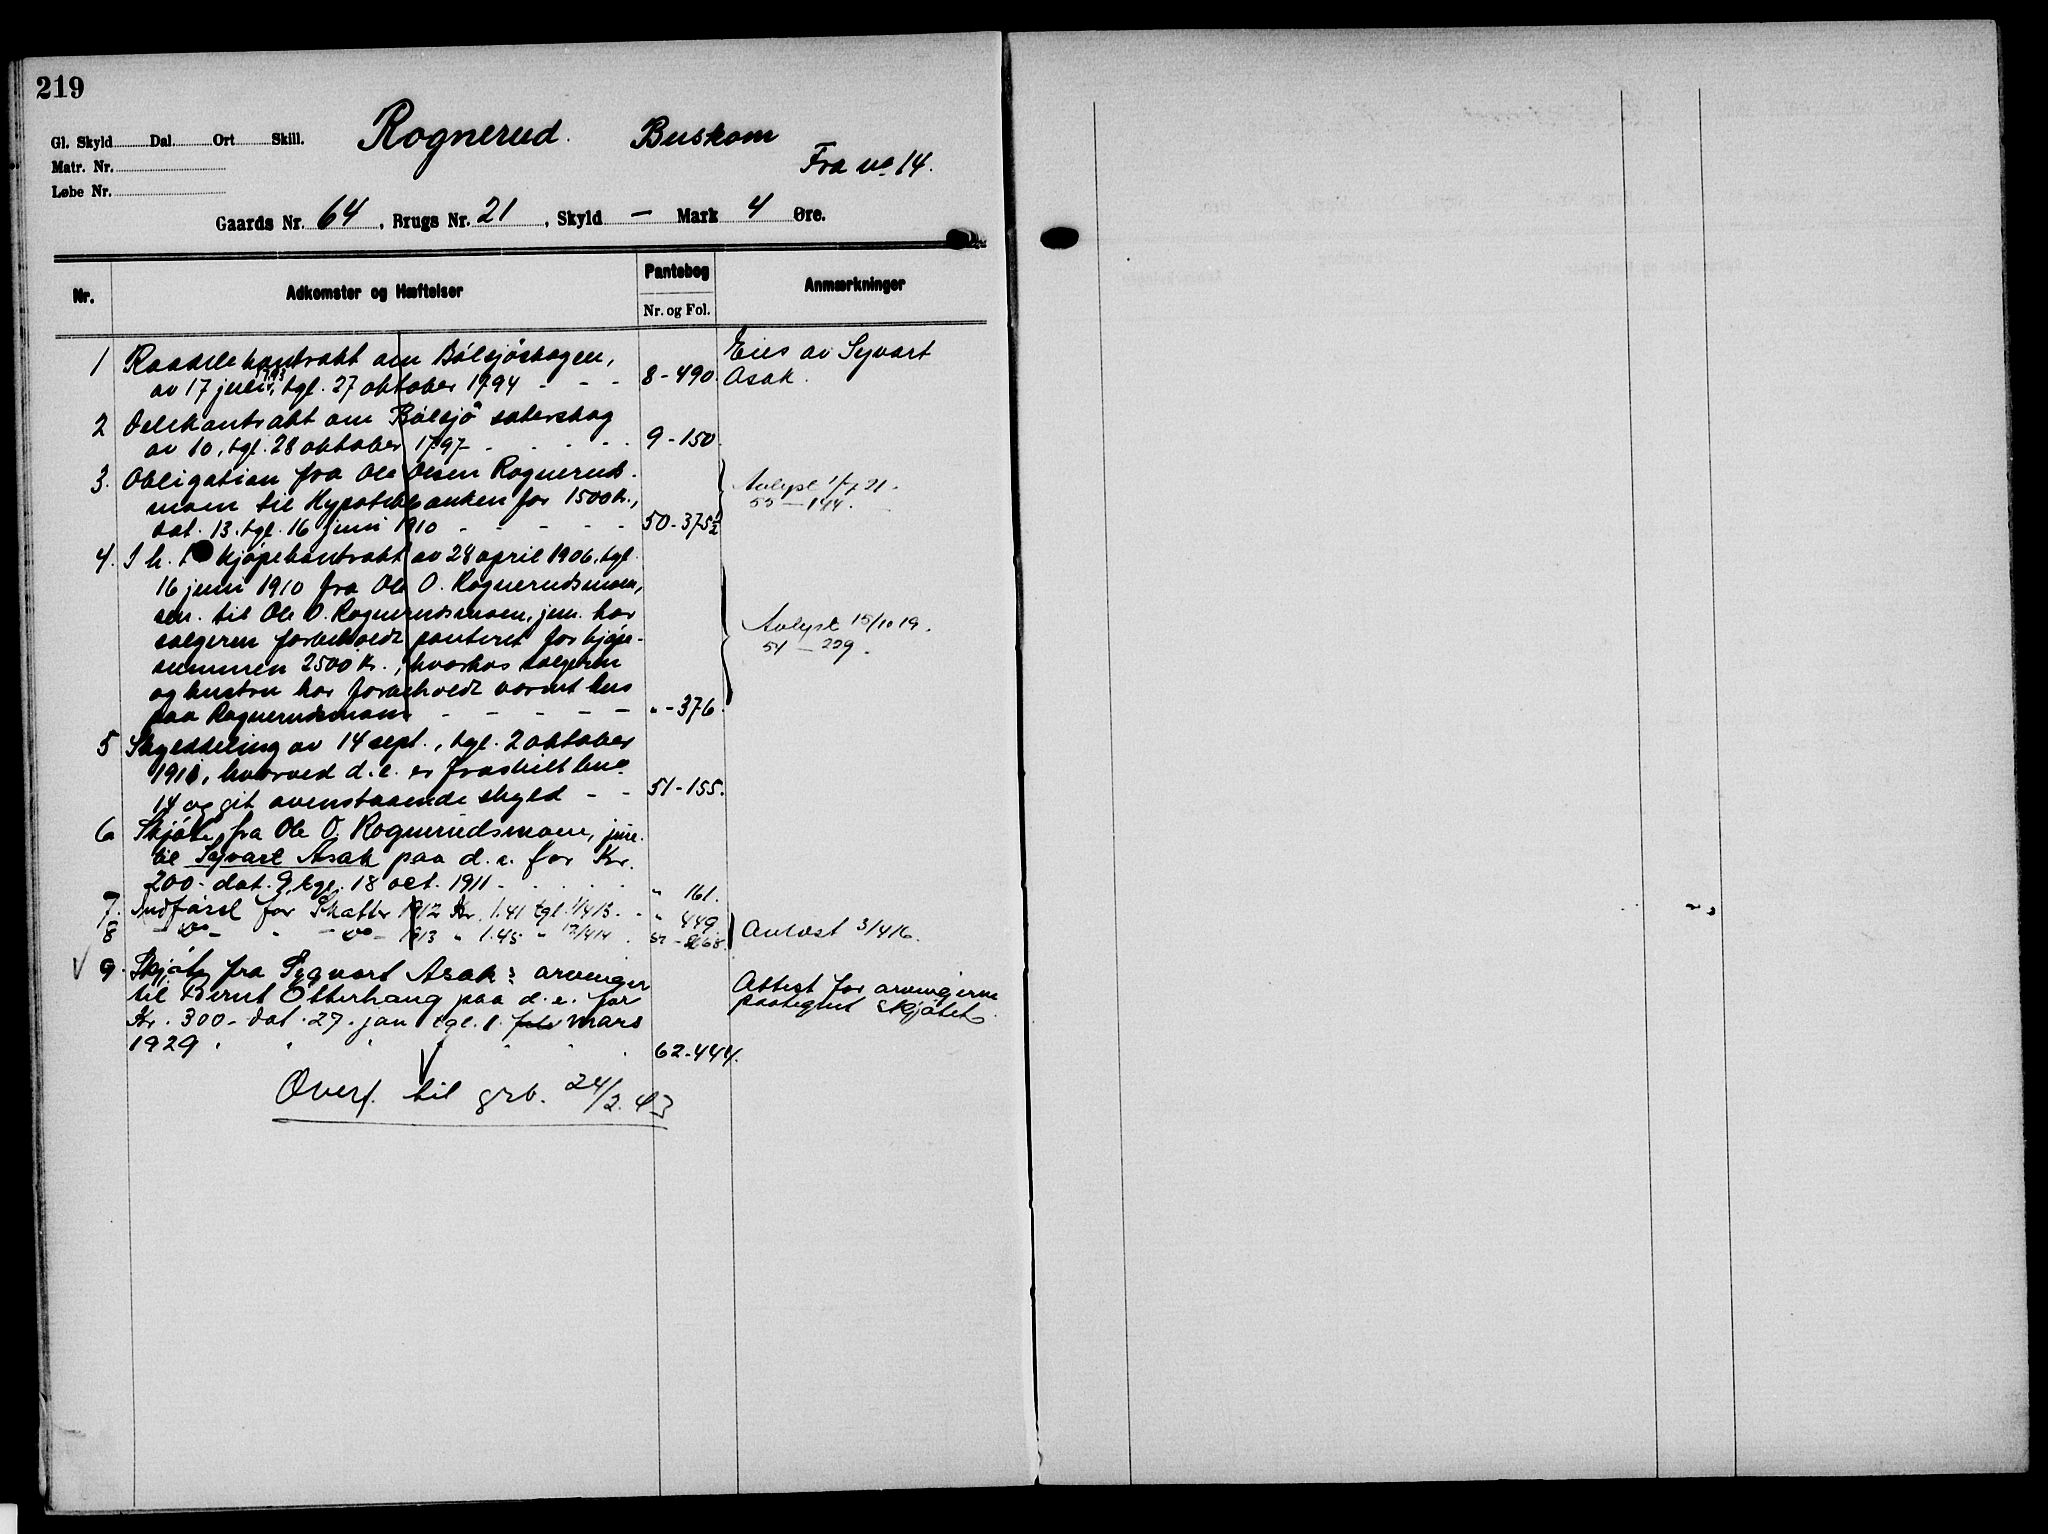 219
Rognerud. Buskom
Fra no 14.
Gl. Skyld Dal. Ort Skill.
Matr. Nr.
Løbe Nr.
Gaards Nr. 64, Brugs Nr. 21, Skyld — Mark 4 Øre.
Nr. Adkomster og Hæftelser Pantebog Anmærkninger
Nr. og Fol.
1 kontrakt om Bölsjöskogen, Eies av Syvart
av 17 juli 1793, tgl. 27 oktober 1794 - - - 8-490. Asak.
2 Delekontrakt om Bölsjö seterskog
av 10, tgl. 28 oktober 1797 - - - - 9-150.
3. Obligation fra Ole Olsen Rogneruds-
moen til Hypotekbanken for 1500 Kr., Avlyst 1/7 21.
dat. 13. tgl. 16 juni 1910 - - - - 50-375½ 55-144.
4. I h. t. kjøpekontrakt av 28 april 1906, tgl.
16 juni 1910 fra Ole O. Rognerudsmoen,
sen. til Ole O. Rognerudsmoen, jun. har
selgeren forbeholdt panteret for kjøpe- Avlyst 15/10 19.
summen 2500 Kr., hvorhos selgeren 54-229.
og hustru har forbeholdt hus
paa Rognerudsmoen - - - - - " - 376.
5 Skylddeling av 14 sept., tgl. 2 oktober
1911, hvorved d. e. er fraskilt bno
14 og git ovenstaaende skyld - - 51-155.
6 Skjöte fra Ole O. Rognerudsmoen, jun.
til Syvart Asak paa d. e. for Kr.
200.- dat. 9 tgl. 18 oct. 1911 - . . . " 161.
7. Indførsel for Skatter 1912 Kr. 1.41 tgl. 1/4 13. " 449
8 - do - " - do - 1913 " 1.45 " 12/4 14. Avlæst 3/4 16.
9. Skjöte fra Sygvart Asak's arvinger Attest for arvingerne
til Bernt Otterhaug paa d. e. for paategnet skjötet.
Kr. 300.- dat. 27. jan tgl. 1. febr mars
1929. " " " " " 62-444.
Overf. til grb. 24/2.43